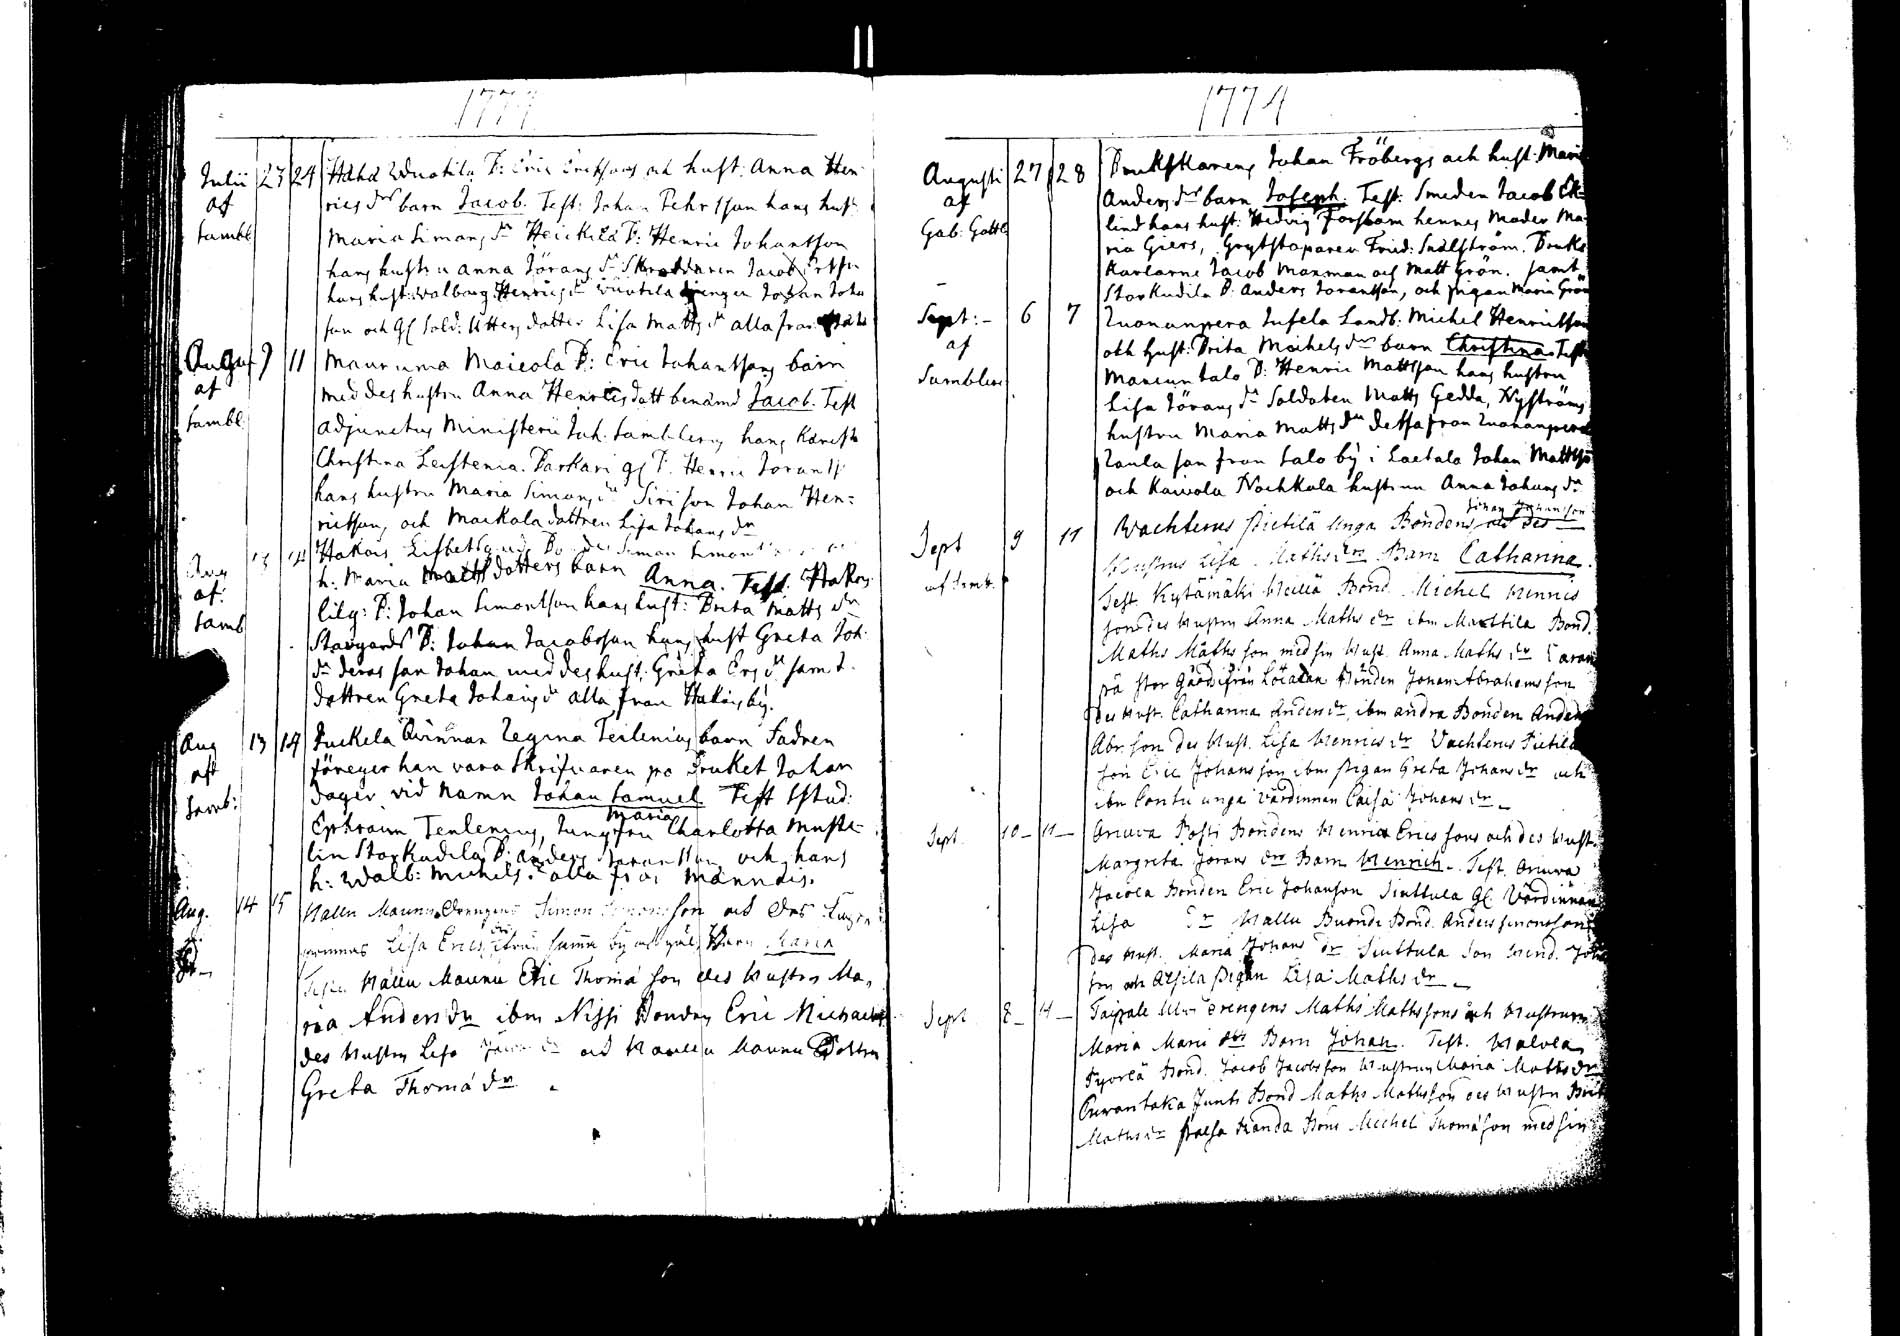 1774
Julii 23 24 Haha Wuotila B: Eric Ericksons och hust: Anna Hen-
af rics dr barn Jacob. Test: Johan Pehrsson hans hust.
Sambl Maria Simons dr Heickilä B: Henric Johansson
hans hustru Anna Jörans dr Skräddaren Jacob
hans hust: Walborg Henrics dr Wuotila drengen Johan Joha
son och Gl Sold: Utters dotter Lisa Matts dr alla fran
August 9 11 Maununa Maicola B: Eric Johanssons barn
af med des hustru Anna Henricsdott benämd Jacob. Test
Sambl. Adjunctus Ministerii Joh. Samblerus hans Käresta
Christina Lestenia. Parkari gl B. Henric Joranss
hans hustru Maria Simons dr Siri son Johan Hen=
ricsson, och Maikola dottren Lisa Johans dr
Aug 13 14 Hakois Lisbets Bonden Simon Simons
af: h: Maria Matts dotters barn Anna. Test. Hakois
Samb lilg: B: Johan Simonsson hans hust: Brita Matts dr
Storgårds B: Johan Jacobsson hans hust Greta Joh.
dr deras son Johan med des hust. Greta Ers dr samt
dottren Greta Johans dr alla fran Hakois by.
Aug 13 14 Juckela Qvinnan Regina Teilenius barn Fadren
aft föreger han vara Skrifvaren pa Bruket Johan
Samb: Dager vid namn Johan Samuel Test Stud:
Maria
Ephraim Tenlenius, Jungfru Charlotta Muste-
lin Storkudila B: Anders Joransson och hans
h: Walb: Michels dr alla från Männäis.
Aug. 14 15 Hallu Maunu Drengens Simon Simons son och des
Lisa Erics från samma by Barn Maria
Test. Hallu Maunu Eric Thomä son des Hustru Ma-
ria Anders dr ibm Nissi Bonden Eric Michaels
des Hustru Lisa och Hallu Maunu Dottren
Greta Thomä dr
1774
Augusti 27 28 Brukskarens Johan Fröbergs och hust: Maria
af Anders dr barn Joseph. Test. Smeden Jacob Ek-
Gab: Gotts lind hans hust: Hedvig Forsbom hennes Moder Ma-
ria Giers, Grytstöparen Frid: Sahlström. Bruks
Karlarne Jacob Manman och Matt Grön. samt
Storkudila B: Anders Joransson, och pigan Maria Grön
Sept:- 6 7 Zuananpera Jusela Landb: Michel Henricsson
af och hust: Brita Michels dr barn Christina Test
Samblerus Mancuntalo B: Henric Mattsson hans hustru
Lisa Jörans dr Soldaten Matts Gedda, Nyströms
hustru Maria Matts dr dessa fran Zuananpera
Zaula son fran Salo by i Laetala Johan Mattsson
och Kaivola Nochkala hustrun Anna Johans dr
Johan Johansson
Sept 9 11 Wachterus Pietilä Unga Bondens och des
af Samb. Hustrus Lisa Maths dr Barn Catharina.
Test. Kytämäki Heillä Bond. Michel Henrics
son des Hustru Anna Maths dr ibm Marttila Bond.
Maths Maths son med sin Hust. Anna Maths dr
på stor Gård ifrån Bonden Johan Abrahams son
des Hust. Catharina Anders dr, ibm andra Bonden Anders
Abr. son des Hust. Lisa Henrics dr Vachterus Pietila
son Eric Johans son ibm pigan Greta Johans dr och
ibm Contu unga värdinnan Caisa Johans dr
Sept 10- 11- Oriuva Posti Bondens Henrich Erics sons och des Hust.
Margreta Jorans dr Barn Henrich. Test. Oriuva
Jacola Bonden Eric Johanson Siuttula Gl Värdinnan
Lisa dr Hallu Buondi Bond. Anders Simonsson
des Hust. Maria Johans dr Siuttula Son Hind. Joh
son och Alsila pigan Lisa Maths dr
Sept 8- 11- Taipale Drengens Maths Mathssons och Hustruns
Maria Barn Johan. Test. Walola
Pyorlä Bond. Jacob Jacobsson Hustrun Maria Maths dr
Junti Bond Maths Mathsson des Hustru Brit
Maths dr Handa Michel Thomä son med sin